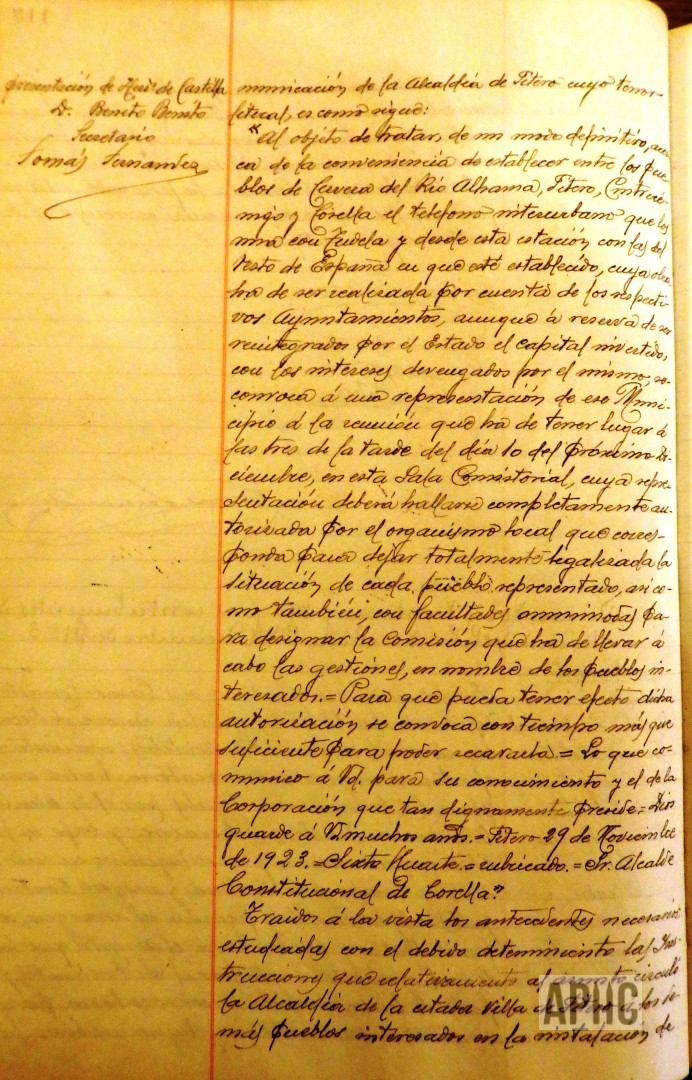 presentación de de Castilla
D. Benito Benito
Secretario
Tomás Fernandez
municación de la Alcaldía de Fitero cuyo tenor
literal, es como sigue:
"Al objeto de tratar, de un modo definitivo, acer
ca de la conveniencia de establecer entre los pue
blos de Cervera del Río Alhama, Fitero, Cintrué-
nigo y Corella el teléfono interurbano que los
una con Tudela y desde esta estación con las del
resto de España en que esté establecido, cuya obra
ha de ser realizada por cuenta de los respecti-
vos Ayuntamientos, aunque á reserva de ser
reintegrados por el Estado el capital invertido,
con los intereses devengados por el mismo, se
convoca á una representación de ese Muni-
cipio á la reunión que ha de tener lugar á
las tres de la tarde del día 10 del próximo Di-
ciembre, en esta Sala Consistorial, cuya repre-
sentación deberá hallarse completamente au-
torizada por el organismo local que corres-
ponda para dejar totalmente legalizada la
situación de cada pueblo representado, así co-
mo también, con facultades omnimodas pa-
ra designar la Comisión que ha de llevar á
cabo las gestiones, en nombre de los pueblos in-
teresados.= Para que pueda tener efecto dicha
autorización se convoca con tiempo más que
suficiente para poder recavarla.= Lo que co-
munico á Vd. para su conocimiento y el de la
Corporación que tan dignamente preside= Dios
guarde á Vd. muchos años.= Fitero 29 de Noviembre
de 1923.= Sixto Huarte.= rubricado.= Sr. Alcalde
Constitucional de Corella"
Traidos á la vista los antecedentes necesarios
estudiadas con el debido detenimiento las Ins-
trucciones que relativamente al asunto circuló
la Alcaldía de la citada Villa de Fitero a los de
más pueblos interesados en la instalación de
APHC